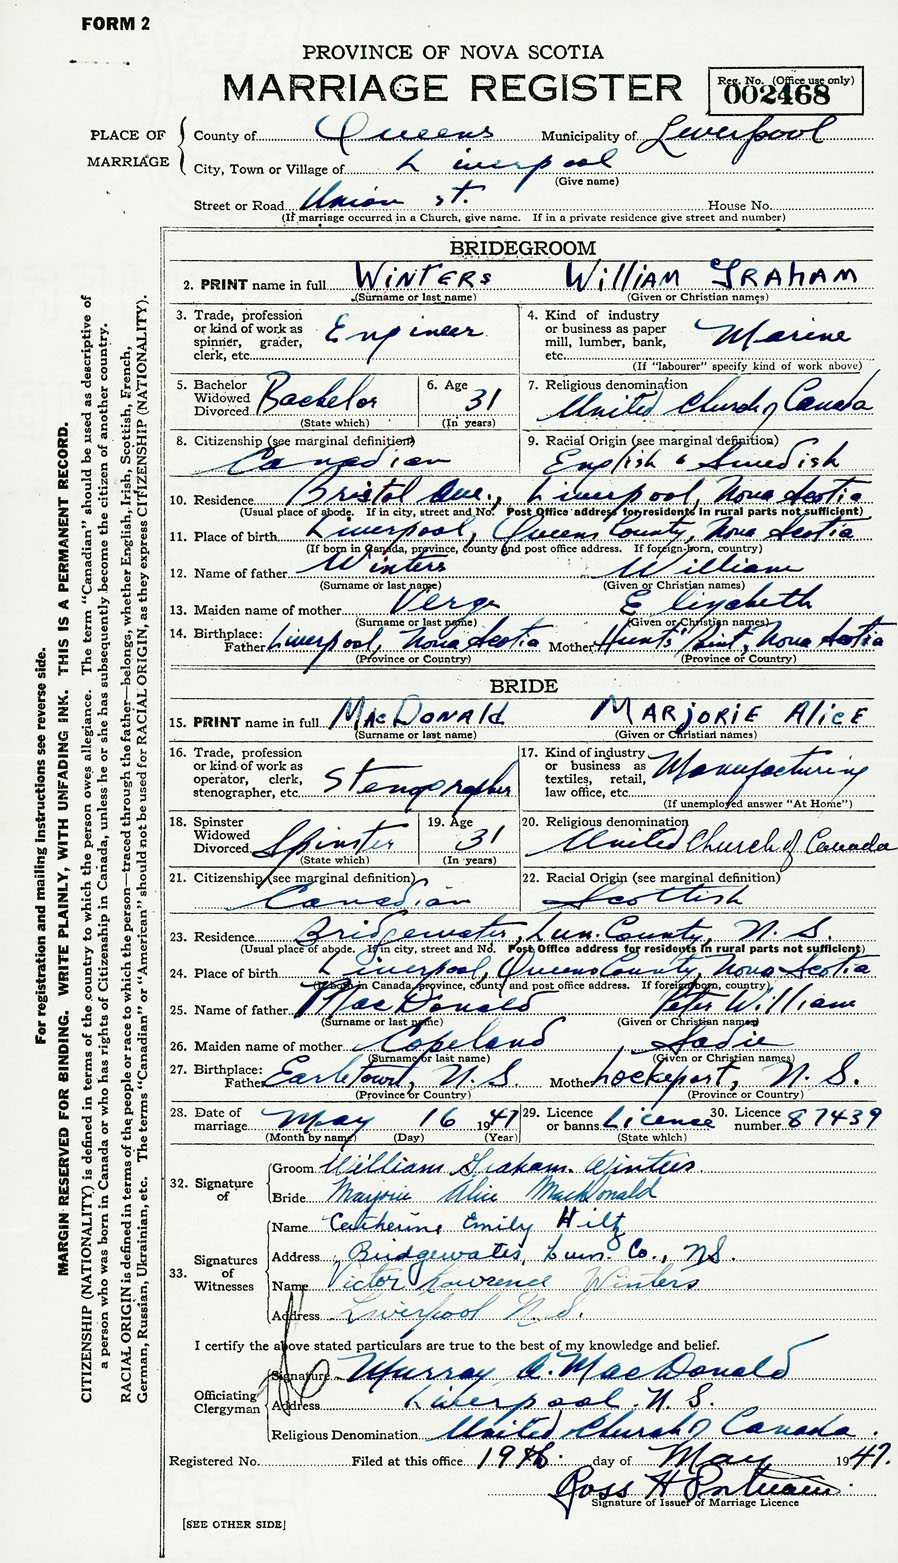 FORM 2
PROVINCE OF NOVA SCOTIA
MARRIAGE REGISTER
Reg. No. (Office use only)
002468
PLACE OF MARRIAGE
County of Queens Municipality of Liverpool
City, Town or Village of Liverpool
(Give name)
Street or Road Union St. House No.
(If marriage occurred in a Church, give name. If in a private residence give street and number)
BRIDEGROOM
2. PRINT name in full WINTERS WILLIAM GRAHAM
(Surname or last name) (Given or Christian names)
3. Trade, profession or kind of work as spinner, grader, clerk, etc. Engineer
4. Kind of industry or business as paper mill, lumber, bank, etc. Marine
(If "labourer" specify kind of work above)
5. Bachelor Widowed Divorced Bachelor
(State which)
6. Age 31
(In years)
7. Religious denomination United Church of Canada
8. Citizenship (see marginal definition) Canadian
9. Racial Origin (see marginal definition) English & Swedish
10. Residence Bristol Ave., Liverpool, Nova Scotia
(Usual place of abode. If in city, street and No. Post Office address for residents in rural parts not sufficient)
11. Place of birth Liverpool, Queens County, Nova Scotia
(If born in Canada, province, county and post office address. If foreign-born, country)
12. Name of father Winters William
(Surname or last name) (Given or Christian names)
13. Maiden name of mother Verge Elizabeth
(Surname or last name) (Given or Christian names)
14. Birthplace: Father Liverpool, Nova Scotia Mother Hunts' Point, Nova Scotia
(Province or Country) (Province or Country)
BRIDE
15. PRINT name in full MacDonald MARJORIE ALICE
(Surname or last name) (Given or Christian names)
16. Trade, profession or kind of work as operator, clerk, stenographer, etc. Stenographer
17. Kind of industry or business as textiles, retail, law office, etc. Manufacturing
(If unemployed answer "At Home")
18. Spinster Widowed Divorced Spinster
(State which)
19. Age 31
(In years)
20. Religious denomination United Church of Canada
21. Citizenship (see marginal definition) Canadian
22. Racial Origin (see marginal definition) Scottish
23. Residence Bridgewater, Lun. County, N. S.
(Usual place of abode. If in city, street and No. Post Office address for residents in rural parts not sufficient)
24. Place of birth Liverpool, Queens County, Nova Scotia
(If born in Canada, province, county and post office address. If foreign-born, country)
25. Name of father MacDonald Peter William
(Surname or last name) (Given or Christian names)
26. Maiden name of mother Copeland Sadie
(Surname or last name) (Given or Christian names)
27. Birthplace: Father Earltown, N. S. Mother Lockeport, N. S.
(Province or Country) (Province or Country)
28. Date of marriage May 16 1947
(Month by name) (Day) (Year)
29. Licence or banns License
(State which)
30. Licence number 87439
32. Signature of
Groom William Graham Winters
Bride Marjorie Alice MacDonald
33. Signatures of Witnesses
Name Catherine Emily Hiltz
Address Bridgewater, Lun. Co., N.S.
Name Victor Lawrence Winters
Address Liverpool N.S.
I certify the above stated particulars are true to the best of my knowledge and belief.
Officiating Clergyman
Signature Murray A. MacDonald
Address Liverpool N. S.
Religious Denomination United Church of Canada.
Registered No. Filed at this office 19th day of May 1947.
Ross H
Signature of Issuer of Marriage Licence
[SEE OTHER SIDE]
For registration and mailing instructions see reverse side.
MARGIN RESERVED FOR BINDING. WRITE PLAINLY, WITH UNFADING INK. THIS IS A PERMANENT RECORD.
CITIZENSHIP (NATIONALITY) is defined in terms of the country to which the person owes allegiance. The term "Canadian" should be used as descriptive of
a person who was born in Canada or who has rights of Citizenship in Canada, unless he or she has subsequently become the citizen of another country.
RACIAL ORIGIN is defined in terms of the people or race to which the person—traced through the father—belongs, whether English, Irish, Scottish, French,
German, Russian, Ukrainian, etc. The terms "Canadian" or "American" should not be used for RACIAL ORIGIN, as they express CITIZENSHIP (NATIONALITY).